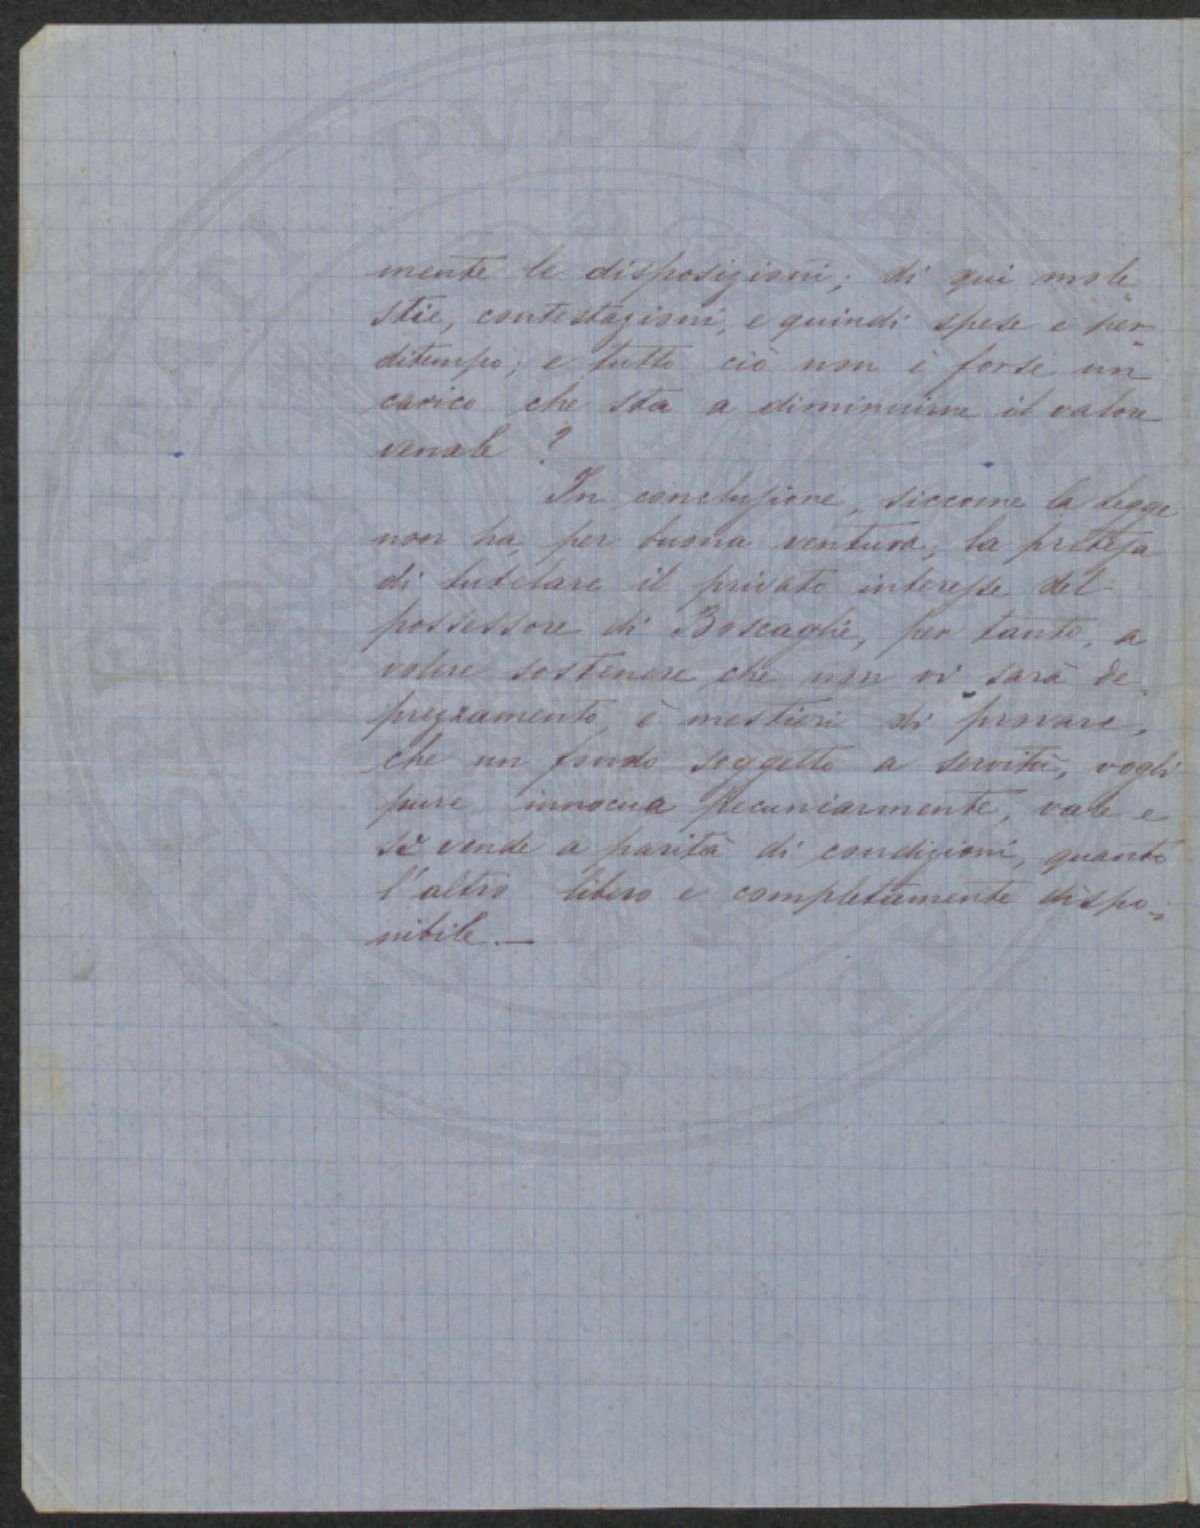 mente le disposizioni; di qui mole
stie, contestazioni, e quindi spese e per
ditempo; e tutto ciò non è forse un
carico che sta a diminuirne il valore
venale?
In conclusione, siccome la legge
non ha, per buona ventura, la pretesa
di tutelare il privato interesse del
possessore di Boscaglie, per tanto, a
volere sostenere che non vi sarà de
prezzamento, è mestieri di provare,
che un fondo soggetto a servitù, vogli
pure innocua pecuniarmente, vale e
si vende a parità di condizioni, quanto
l'altro libero e completamente dispo-
nibile.—